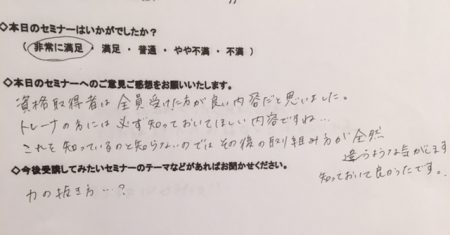 ◇本日のセミナーはいかがでしたか?
( 非常に満足 ・ 満足 ・ 普通 ・ やや不満 ・ 不満 )
◇本日のセミナーへのご意見ご感想をお願いいたします。
資格取得者は全員受けた方が良い内容だと思いました。
トレーナの方には必ず知っておいてほしい内容ですね…
これを知っているのと知らないのではその後の取り組み方が全然
違うような気がします
知っておいて良かったです。
◇今後受講してみたいセミナーのテーマなどがあればお聞かせください。
力の抜き方…?